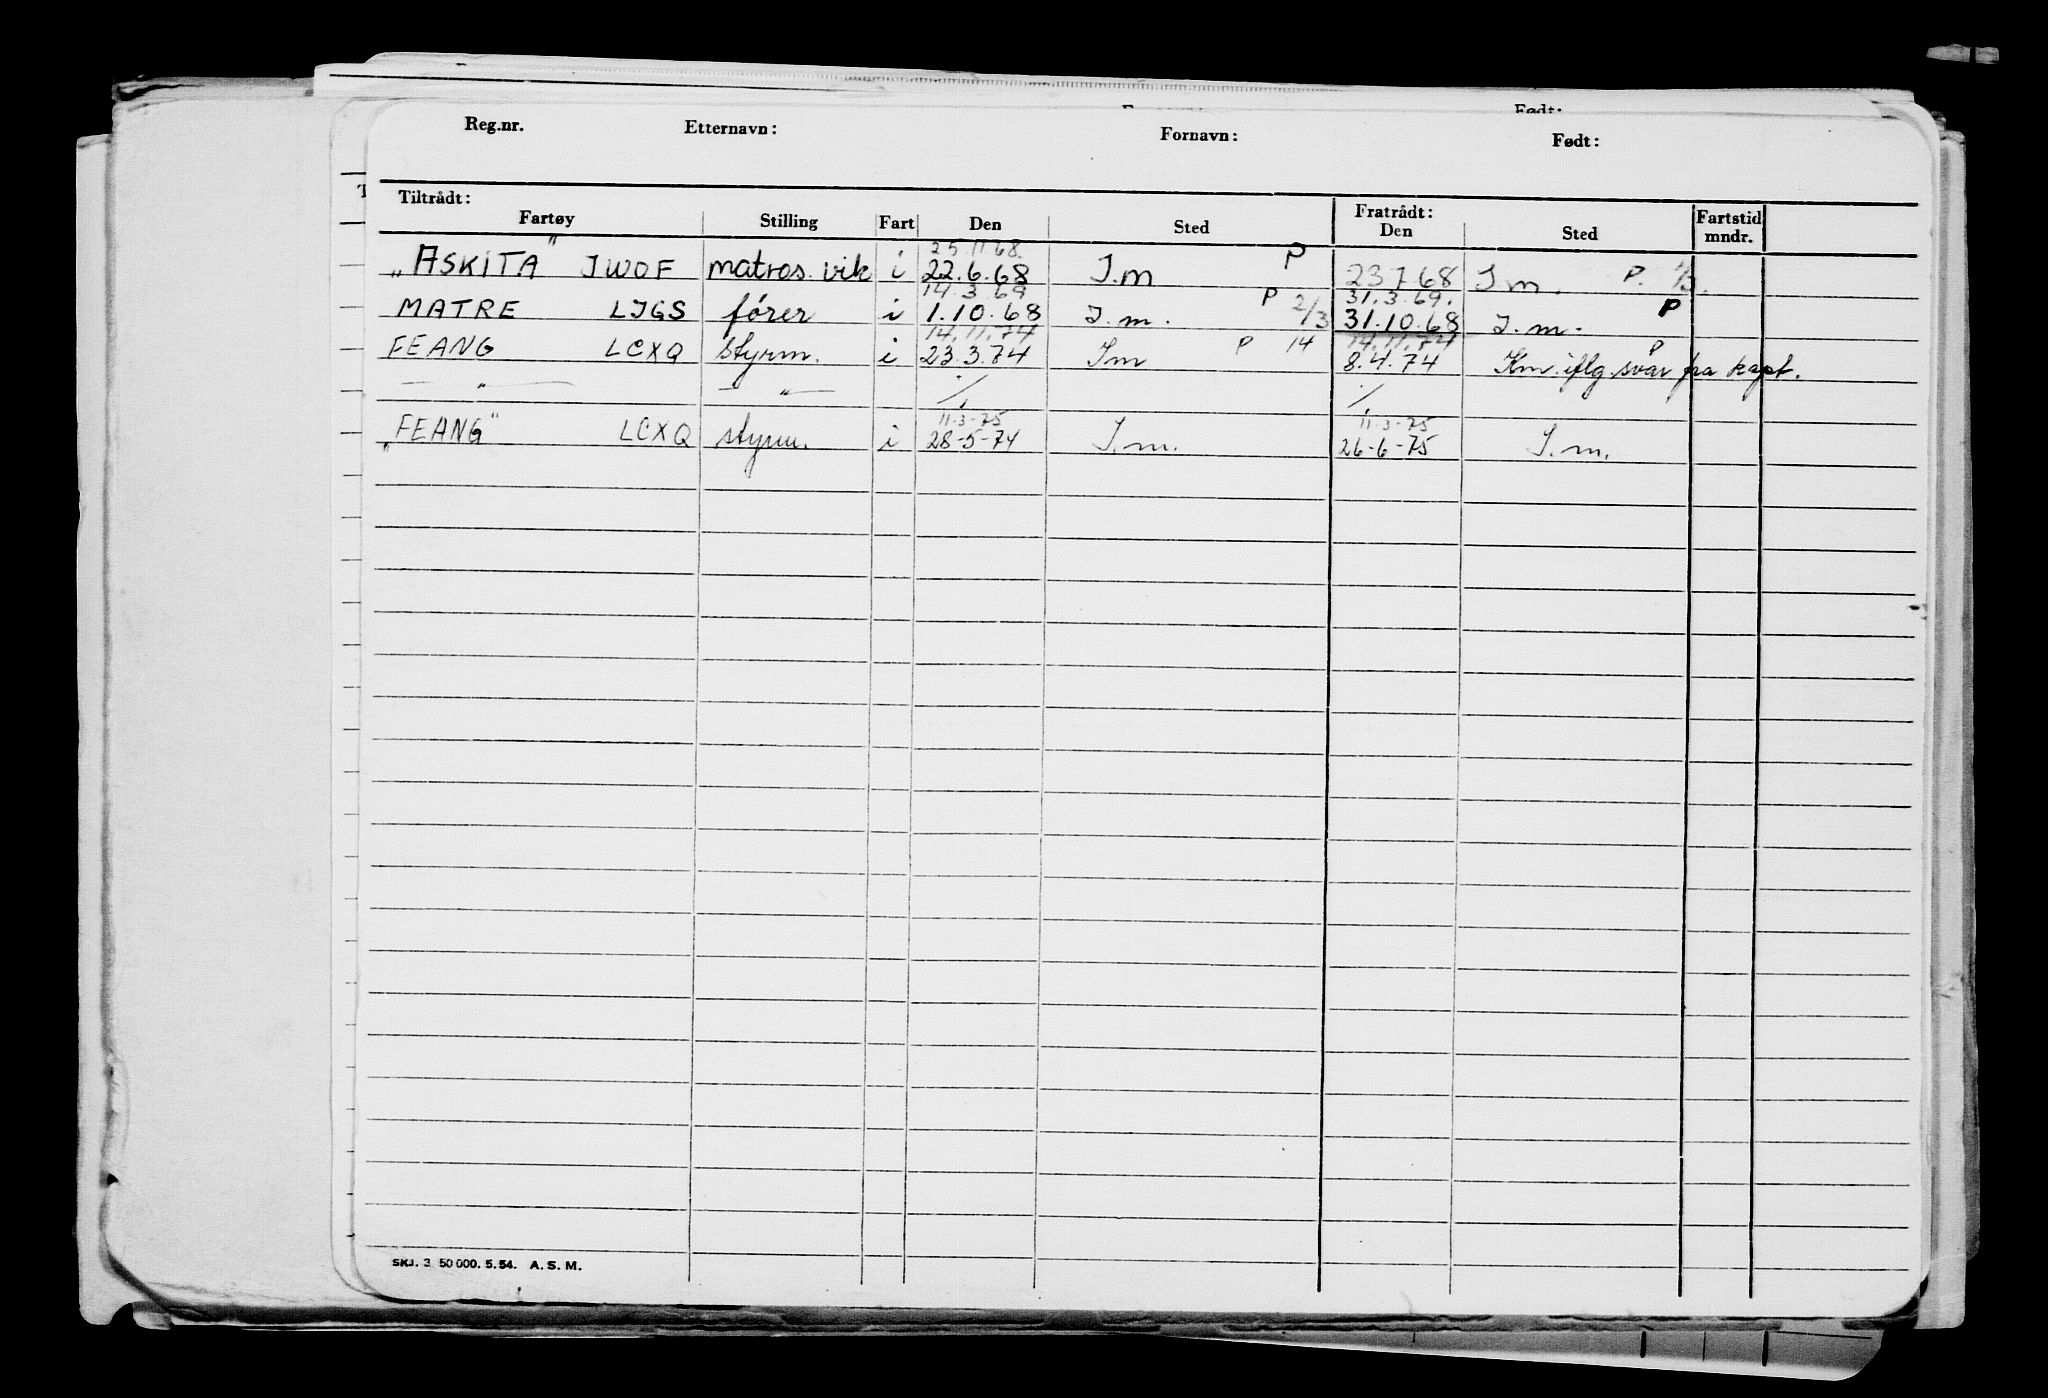 Født:
Reg.nr. Etternavn: Fornavn: Født:
Tiltrådt: Fratrådt:
Fartøy Stilling Fart Den Sted Den Sted Fartstid mndr.
25.11.68.
„ASKITA" JWOF matros. vik i 22.6.68 I.m P 23.7.68 I.m. P.
14.3.69 31.3.69.
MATRE LJGS fører i 1.10.68 I.m. P 2/3 31.10.68 I.m. P
14.11.74 14.11.74
FEANG LCXQ styrm. i 23.3.74 Im P 14 8.4.74 Km. iflg. svar fra kapt. P
— " — — " — ./. ./.
11-3-75 11-3-75
„FEANG" LCXQ styrm. i 28-5-74 I.m. 26-6-75 I.m.
SKJ. 3 50 000. 5. 54. A. S. M.